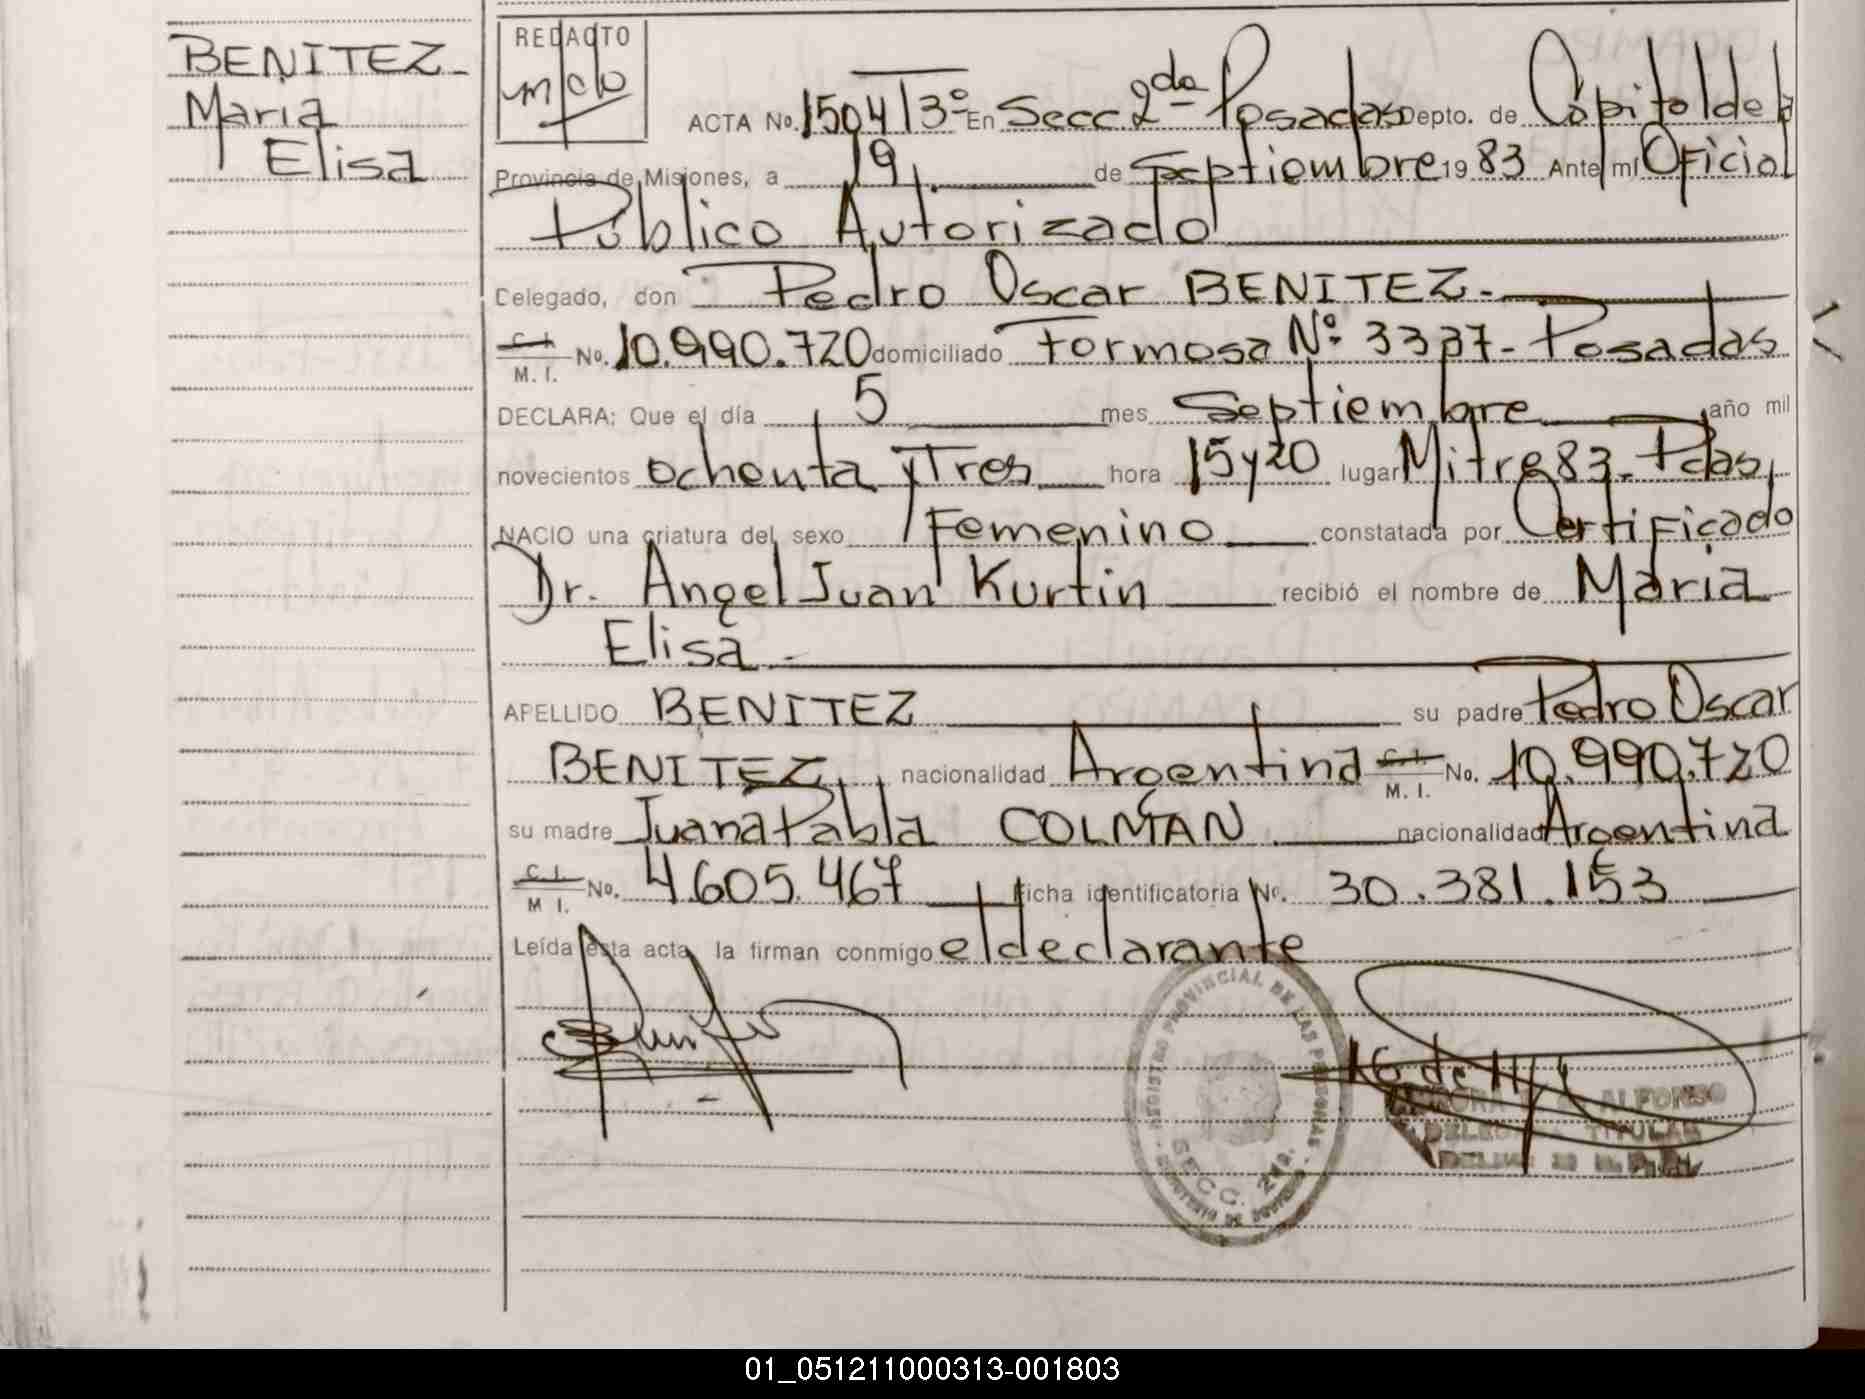 BENITEZ-
Maria
Elisa
REDACTO
ACTA No. 1504 T 3° En Secc 2da Posadas Depto. de Capital de la
Provincia de Misiones, a 19 de Septiembre 1983 Ante mí Oficial
Público Autorizado
Delegado, don Pedro Oscar BENITEZ-
C.I. M. I. No. 10.990.720 domiciliado Formosa Nº 3337- Posadas
DECLARA: Que el día 5 mes Septiembre año mil
novecientos ochenta y Tres hora 15 y 20 lugar Mitre 83- Pdas,
NACIO una criatura del sexo Femenino constatada por Certificado
Dr. Angel Juan Kurtin recibió el nombre de Maria
Elisa-
APELLIDO BENITEZ su padre Pedro Oscar
BENITEZ, nacionalidad Argentina C.I. M. I. No. 10.990.720
su madre Juana Pabla COLMAN nacionalidad Argentina
C.I. M I. No. 4.605.467 Ficha identificatoria No. 30.381.153
Leída esta acta, la firman conmigo el declarante
REGISTRO PROVINCIAL DE LAS PERSONAS
SECC. 2da.
ALFONSO
TITULAR
01_051211000313-001803